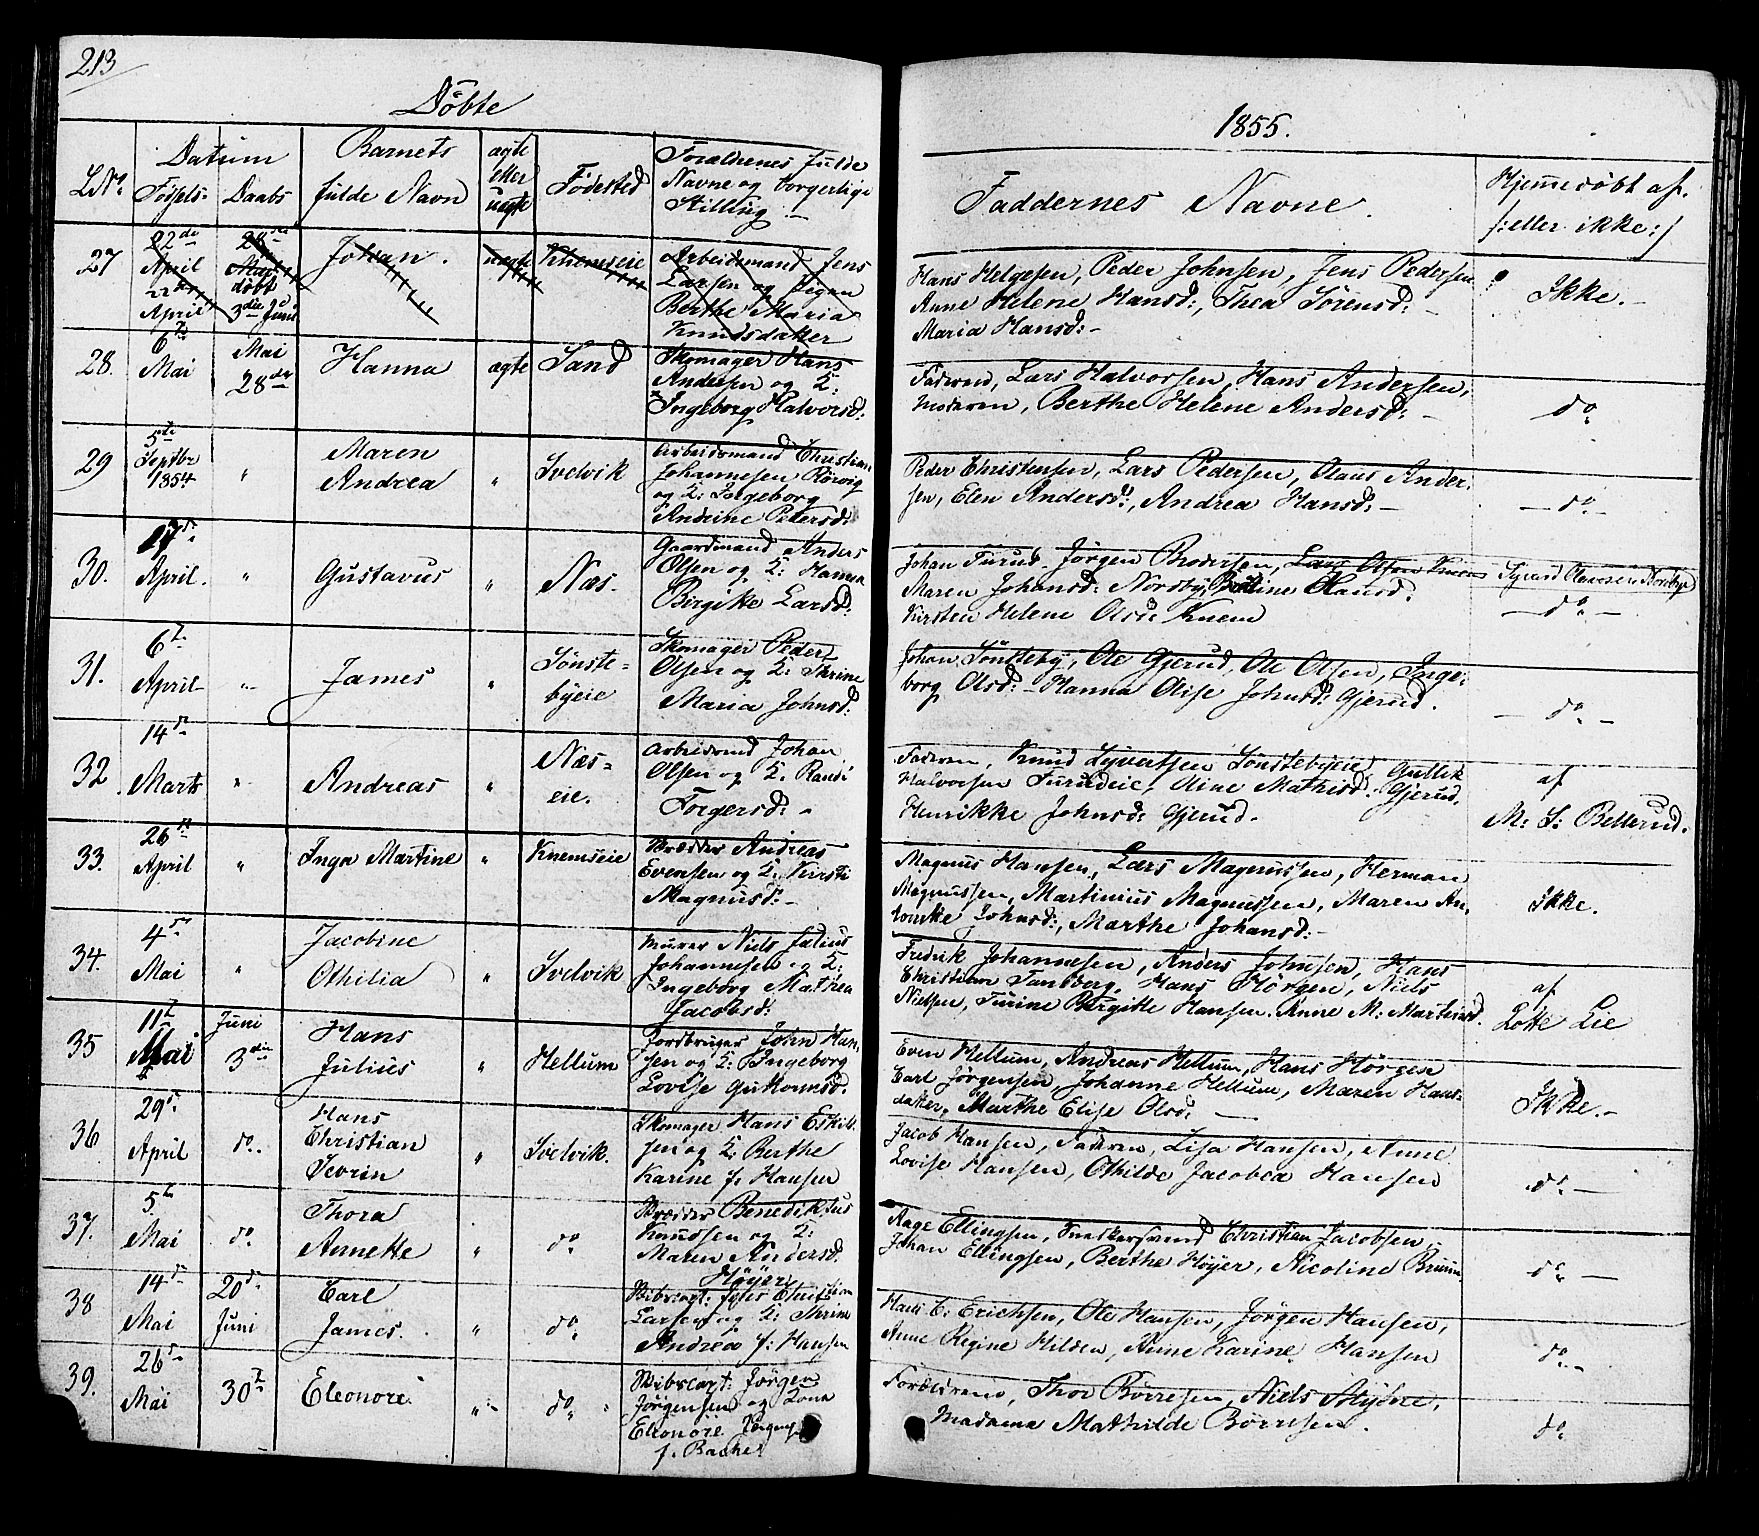 213
Döbte
1855.
LNo.
Datum
Födsels-
Daabs
Barnets
fulde Navn
ægte
eller
uægte
Födested
Forældrenes fulde
Navne og borgerlige
Stilling
Faddernes Navne.
Hjemmedöbt af.
/: eller ikke :/
27
22de
April
April
28de
Mai
döbt
3die Juni
Johan.
uægte
Knemseie
Arbeidsmand Jens
Larsen og Pigen
Berthe Maria
Knudsdatter
Hans Helgesen, Peder Johnsen, Jens Pedersen
Anne Helene Hansd:, Thea Sörensd:
Maria Hansd:
Ikke.
28.
6te
Mai
Mai
28de
Hanna
ægte
Sand
Skomager Hans
Andersen og K:
Ingeborg Halvorsd:
Faderen, Lars Halvorsen, Hans Andersen,
Moderen, Berthe Helene Andersd:
do
29
5te
Septbr
1854
"
Maren
Andrea
"
Svelvik
Arbeidsmand Christian
Johannesen Rörvig
og K: Ingeborg
Andrine Petersd:
Peder Christensen, Lars Pedersen, Olaus Ander-
sen, Elen Andersd:, Andrea Hansd:
do
30.
27de
April.
"
Gustavus
"
Næs.
Gaardmand Anders
Olsen og K: Hanna
Birgitte Larsd:
Johan Furud, Jörgen Brodersen, Lars Olsen Knem Syvard Olavesen Nordby
Maren Johansd: Nordby, Hansd.
Kirsten Helene Olsd: Knem
do
31.
6te
April
"
James
"
Sönste-
byeie
Skomager Peder
Olsen og K: Thrine
Maria Johnsd:
Johan Sönsteby, Ole Gjerud, Ole Olsen, Inge-
borg Olsd: Hanna Olise Johnsd: Gjerud.
do
32
14de
Marts
"
Andreas
"
Næs-
eie.
Arbeidsmd Johan
Olsen og K: Randi
Torgersd:
Faderen, Knud Syvertsen Sönstebyeie, Gullik
Halvorsen Furudeie, Oline Mathisd. Gjerud,
Henrikke Johnsd: Gjerud.
af
M: S: Bellerud.
33.
26de
April
"
Inga Martine
"
Knemseie
Skrædder Andreas
Evensen og K: Kirsti
Magnusd:
Magnus Hansen, Lars Magnussen, Herman
Magnussen, Martinius Magnussen, Maren An-
Johnsd:, Marthe Johansd:
Ikke.
34.
4de
Mai
"
Jacobine
Othilia
"
Svelvik
Murer Niels Julius
Johannesen og K:
Ingeborg Mathea
Jacobsd:
Fredrik Johannesen, Anders Johnsen, Hans
Christian Tandberg, Hans Hörgen, Niels
Nielsen, Turine Birgitte Hansen. Anne M: Martinsd.
af
Lotte Lie
35
11te
Mai
Juni
3die
Hans
Julius
"
Hellum
Jordbruger John Han-
sen og K: Ingeborg
Lovise Guttormsd.
Even Hellum, Andreas Hellum, Hans Hörgen
Carl Jörgensen, Johanne Hellum, Maren Hans-
datter, Marthe Elise Olsd:
Ikke.
36
29de
April
do
Hans
Christian
Sevrin
"
Svelvik.
Skomager Hans Eskild-
sen og K: Berthe
Karine f. Hansen
Jacob Hansen, Faderen, Lisa Hansen, Anne
Lovise Hansen, Othilde Jacobea Hansen
do
37.
5te
Mai
do
Thora
Annette
"
do
Skrædder Benediktus
Knudsen og K:
Maren Andersd.
Höyer
Aage Ellingsen, Snedkersvend Christian Jacobsen
Johan Ellingsen, Berthe Höyer, Nicoline Bruun.
do
38
14de
Mai
20de
Juni
Carl
James.
"
do
Skibscapt: Jens Christian
Larsen og K: Thrine
Andrea f: Hansen
Hans C: Erichsen, Ole Hansen, Jörgen Hansen,
Anne Regine Hilden, Anne Karine Hansen
do
39.
26de
Mai
30te
Eleonore
"
do
Skibscapt: Jörgen
Jörgensen og Kone
Eleonore Jörgens
f. Bache
Forældrene, Thor Börresen, Niels
Madame Mathilde Börresen.
do